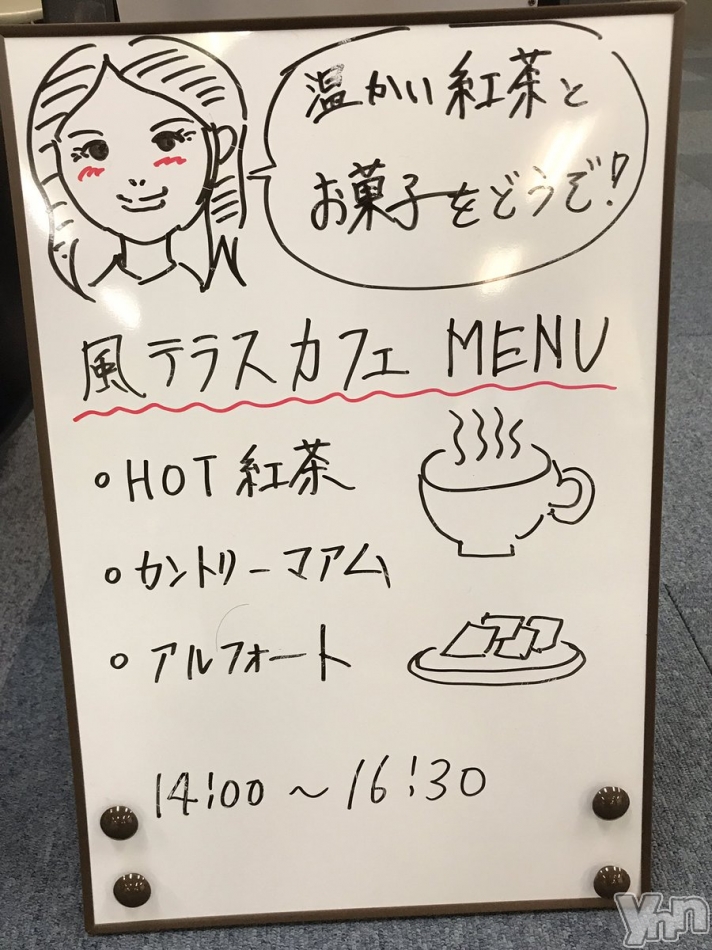 温かい紅茶と
お菓子をどうぞ!
風テラスカフェ MENU
○HOT 紅茶
○カントリーマアム
○アルフォート
14:00～16:30